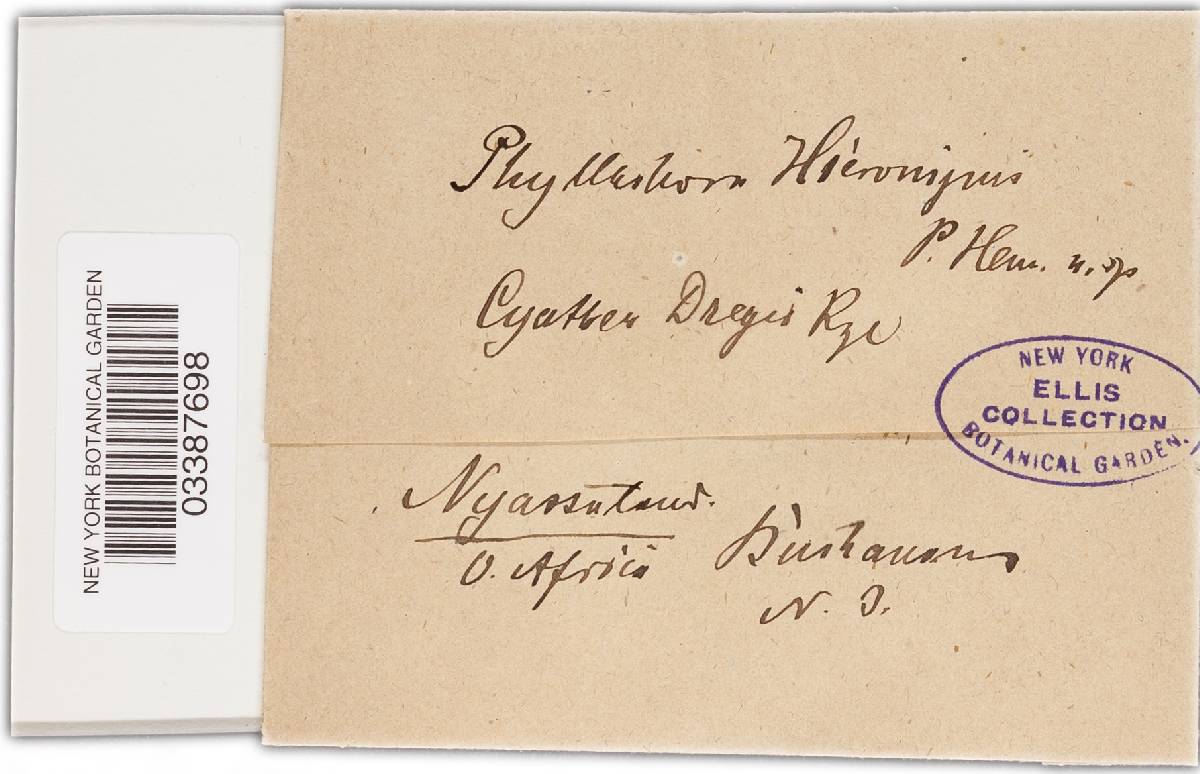 Phyllachora Hieronymis
P. Hem. n. sp
Cyathea Dregei Kze
NEW YORK
ELLIS
COLLECTION
BOTANICAL GARDEN.
Nyassaland.
O. Africa Buchanan
N.
NEW YORK BOTANICAL GARDEN
03387698